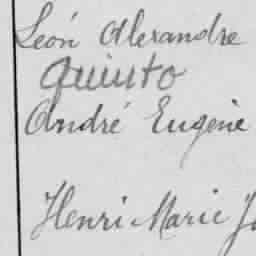 León Alexandre
Quinto
André Eugène
Henri Marie